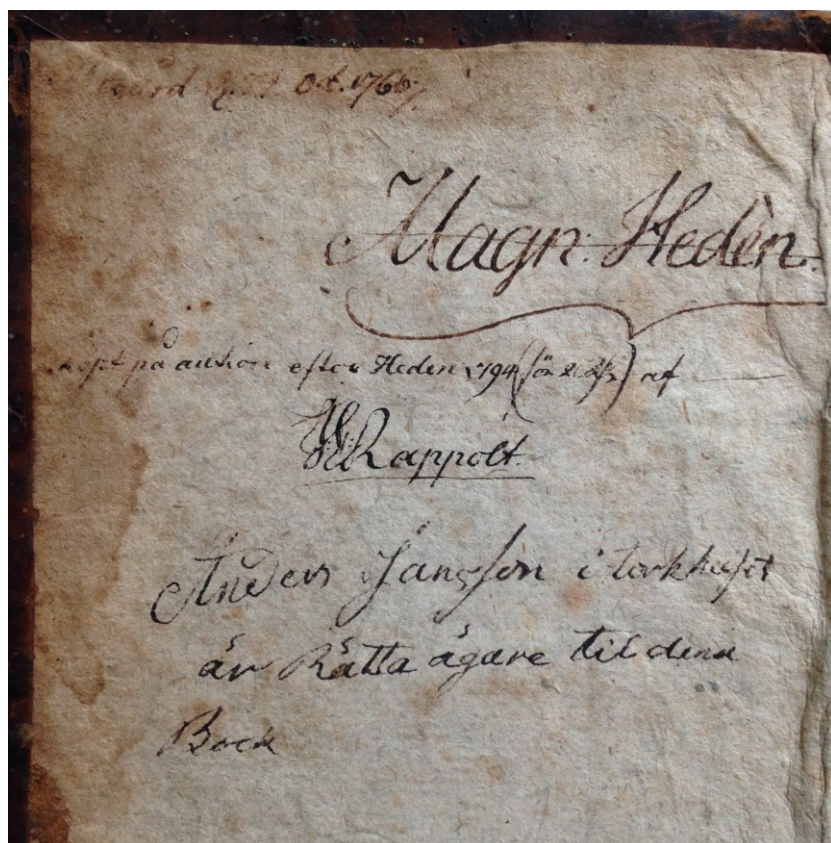 Oct. 1766
Magn: Hedèn.
köpt på auktion efter Heden 1794 (för af
Rappolt.
Anders Jansson i
är Rätta ägare til dena
Bock